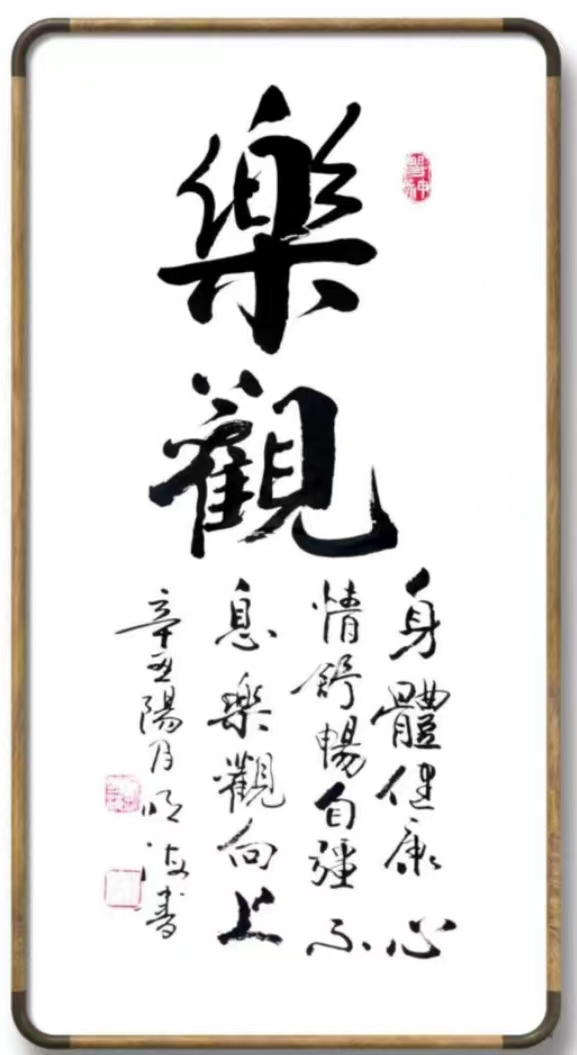 樂觀
身體健康心
情舒暢自彊不
息樂觀向上
辛丑陽月明海書